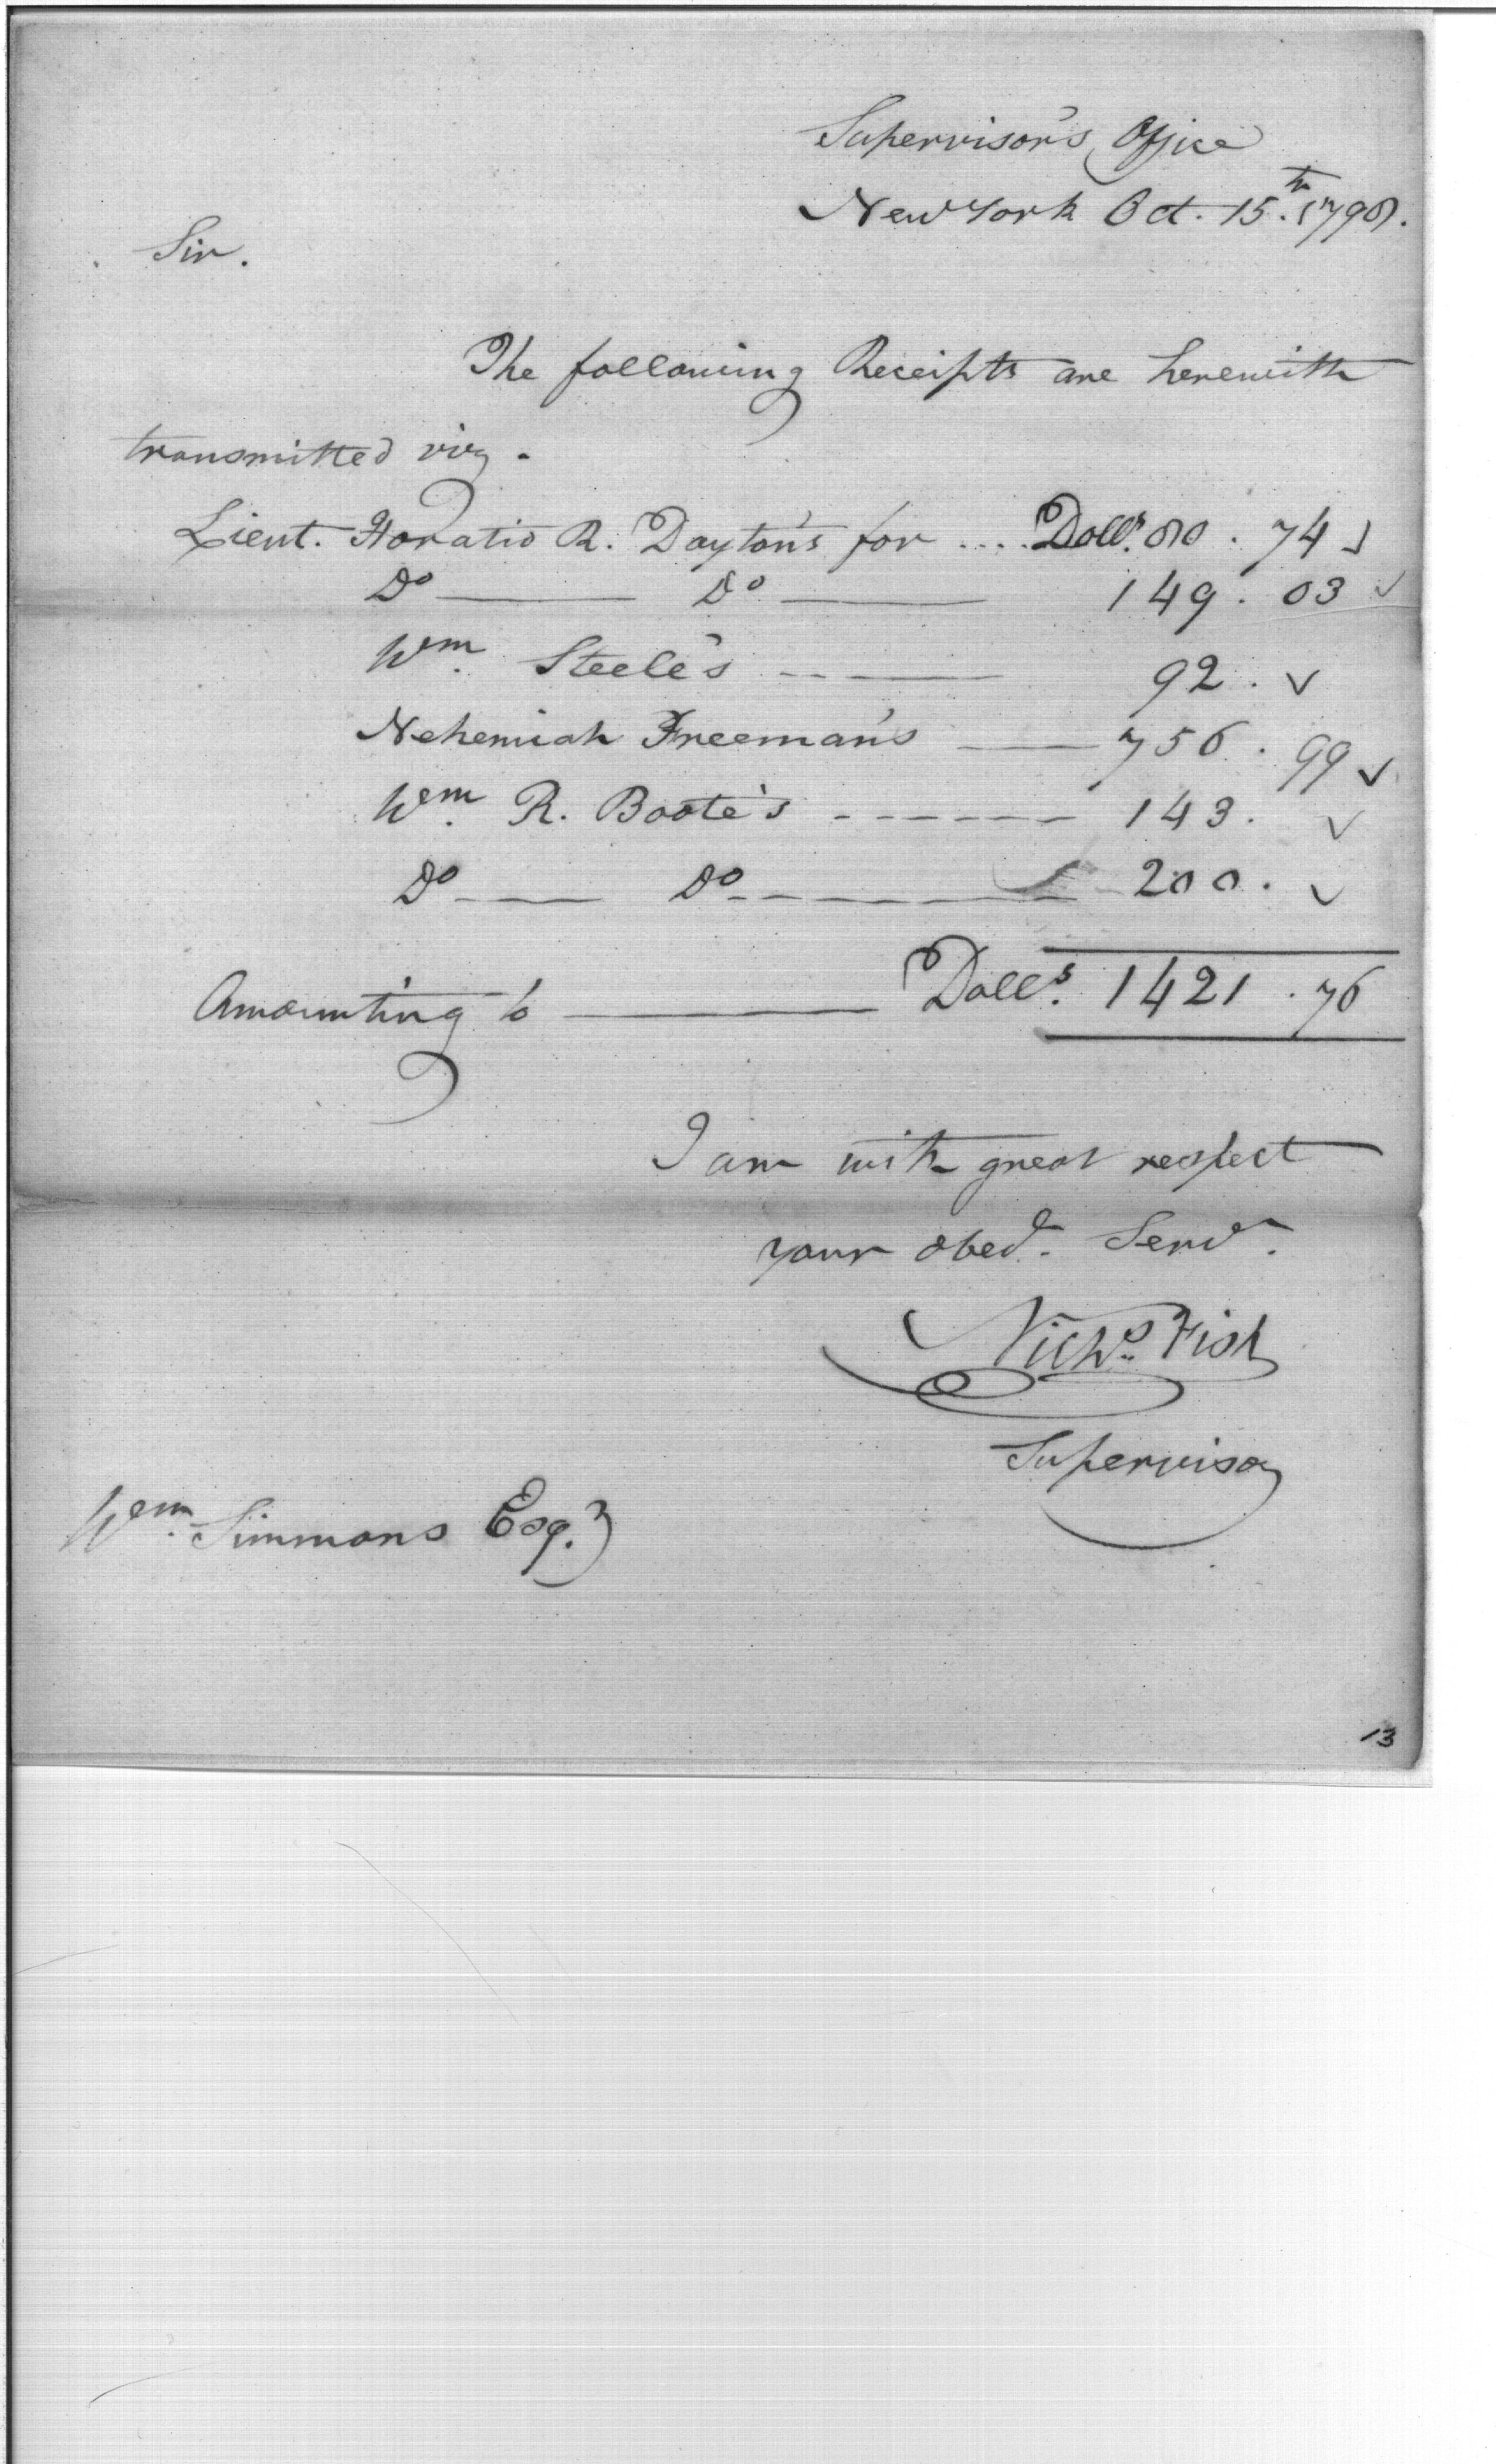 Supervisor's Office
New York Oct. 15.th 1798.
Sir.
The following Receipts are herewith
transmitted viz.
Lieut. Horatio R. Dayton's for .... Dolls. 80 . 74 ✓
Do ——— Do ——— 149 . 03 ✓
Wm. Steele's ——— 92 . ✓
Nehemiah Freeman's ——— 756 . 99 ✓
Wm. R. Boote's ------ 143. ✓
Do ——— Do ------ 200. ✓
Amounting to ——— Dolls. 1421 . 76
I am with great respect
your obedt. Servt.
Nichs. Fish
Supervisor
Wm. Simmons Esq.r
13